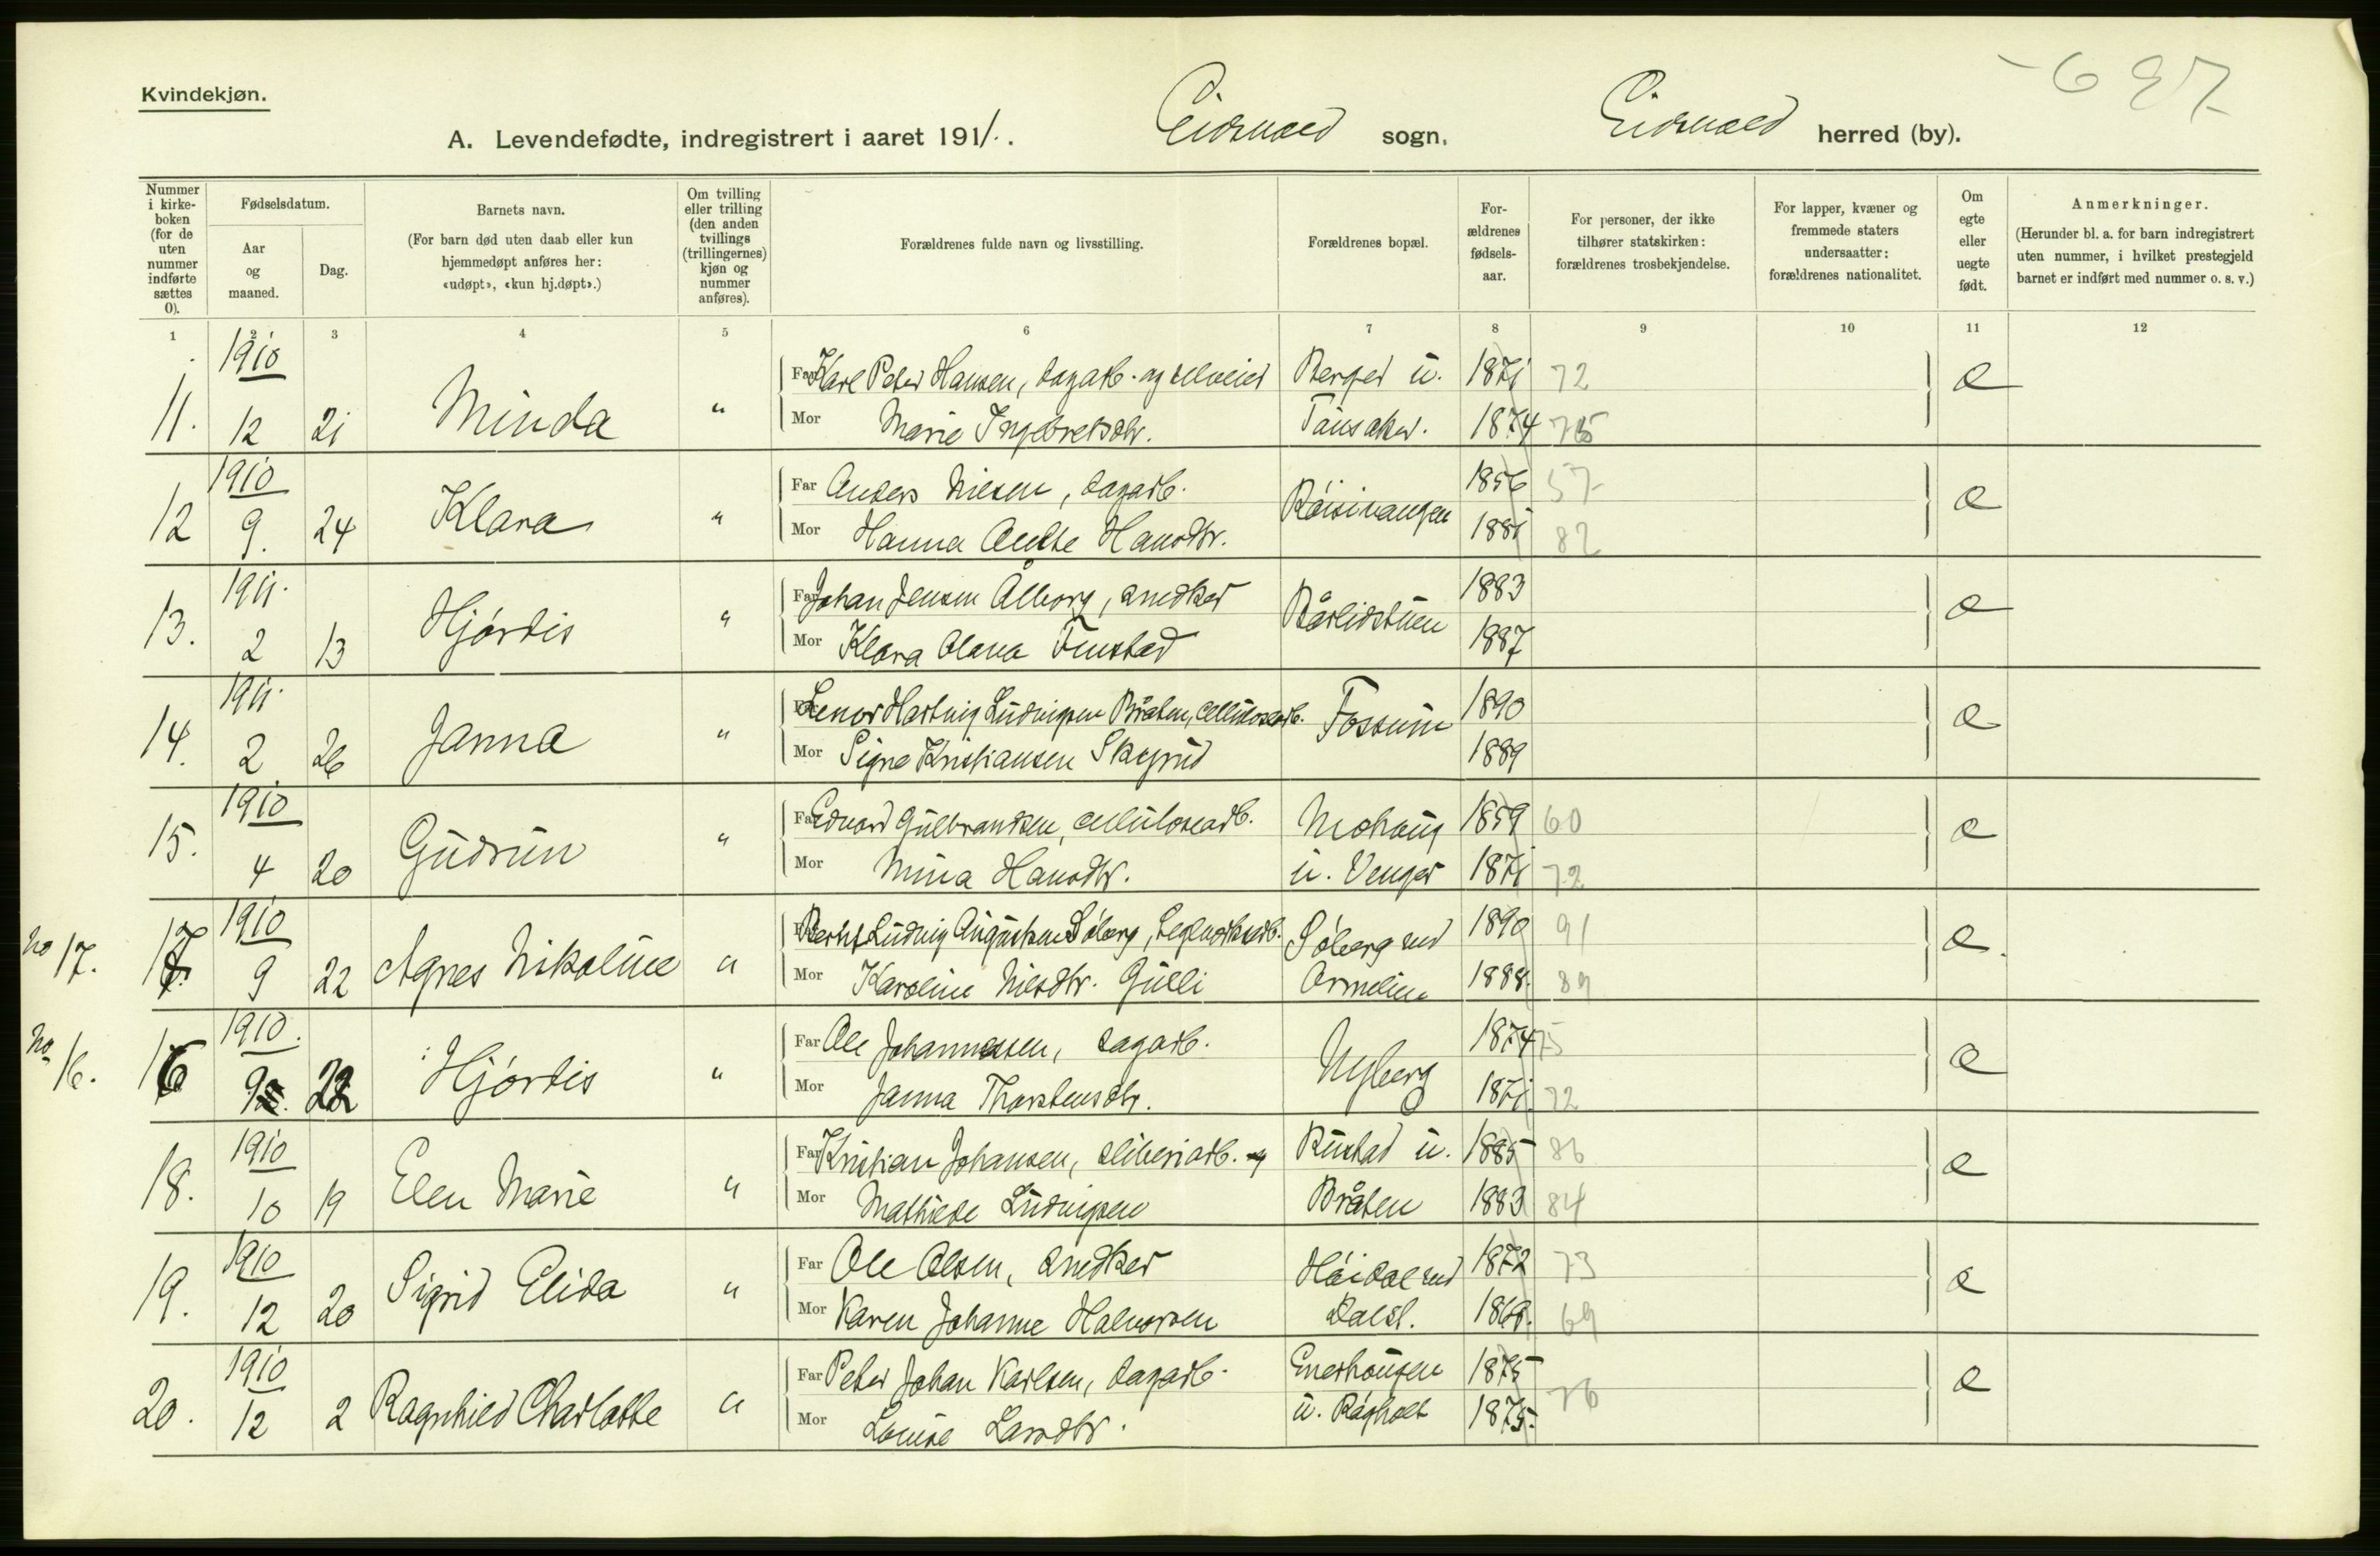 Kvindekjøn.
- 687
A. Levendefødte, indregistrert i aaret 1911. . Eidsvold sogn, Eidsvold herred (by).
Nummer i kirkeboken (for de uten nummer indførte sættes 0).
Fødselsdatum.
Aar og maaned.
Dag.
Barnets navn.
(For barn død uten daab eller kun hjemmedøpt anføres her: «udøpt», «kun hj.døpt».)
Om tvilling eller trilling (den anden tvillings (trillingernes) kjøn og nummer anføres).
Forældrenes fulde navn og livsstilling.
Forældrenes bopæl.
Forældrenes fødselsaar.
For personer, der ikke tilhører statskirken: forældrenes trosbekjendelse.
For lapper, kvæner og fremmede staters undersaatter: forældrenes nationalitet.
Om egte eller uegte født.
Anmerkninger.
(Herunder bl. a. for barn indregistrert uten nummer, i hvilket prestegjeld barnet er indført med nummer o. s. v.)
1 2 3 4 5 6 7 8 9 10 11 12
1910 Far Karl Peter Hansen, dagarb. og selveier Berger u. 1871 72 e
11. 12 21 Minda " Mor Marie Ingebretsdtr. Tausaker. 1874 75
1910 Far Anders Nilsen, dagarb. Röisivangen 1856 57 e
12 9. 24 Klara " Mor Hanna Andte Hansdtr. 1881 82
1911. Far Johan Jensen Ålborg, snedker Bårlidstuen 1883 e
13. 2 13 Hjórdis " Mor Klara Olava Finstad 1887
1911. Lenor Hartvig Ludvigsen Bråten, cellulosearb. Fossum 1890 e
14. 2 26 Janna " Mor Signe Kristiansen Skogrud 1889
1910 Far Edvard Gulbrandsen, cellulosearb. Mohaug 1859 60 e
15. 4 20 Gudrun " Mor Mina Hansdtr. u. Venger 1871 72
1910 Bernt Ludvig Augustsen Sóberg, teglverksarb. Sóberg ved 1890 91 e
No 17. 17. 9 22 Agnes Nikoline " Mor Karoline Nilsdtr. Gulli Ormelien 1888. 89
1910. Far Ole Johannessen, dagarb. Nyberg 1874 75 e
No 16. 16 9 22 Hjórdis " Mor Janna Thorstensdtr. 1871 72
1910 Far Kristian Johansen, sliberiarb. Rustad u. 1885 86 e
18. 10 19 Elen Marie " Mor Mathilde Ludvigsen Bråten 1883 84
1910 Far Ole Olsen, snedker Hóidal ved 1872 73 e
19. 12 20 Sigrid Elida " Mor Karen Johanne Halvorsen Dalsl. 1868. 69
1910 Far Peter Johan Karlsen, dagarb. Enerhaugen 1875 e
20. 12 2 Ragnhild Charlotte " Mor Louise Larsdtr. u. Rágholt 1875. 76